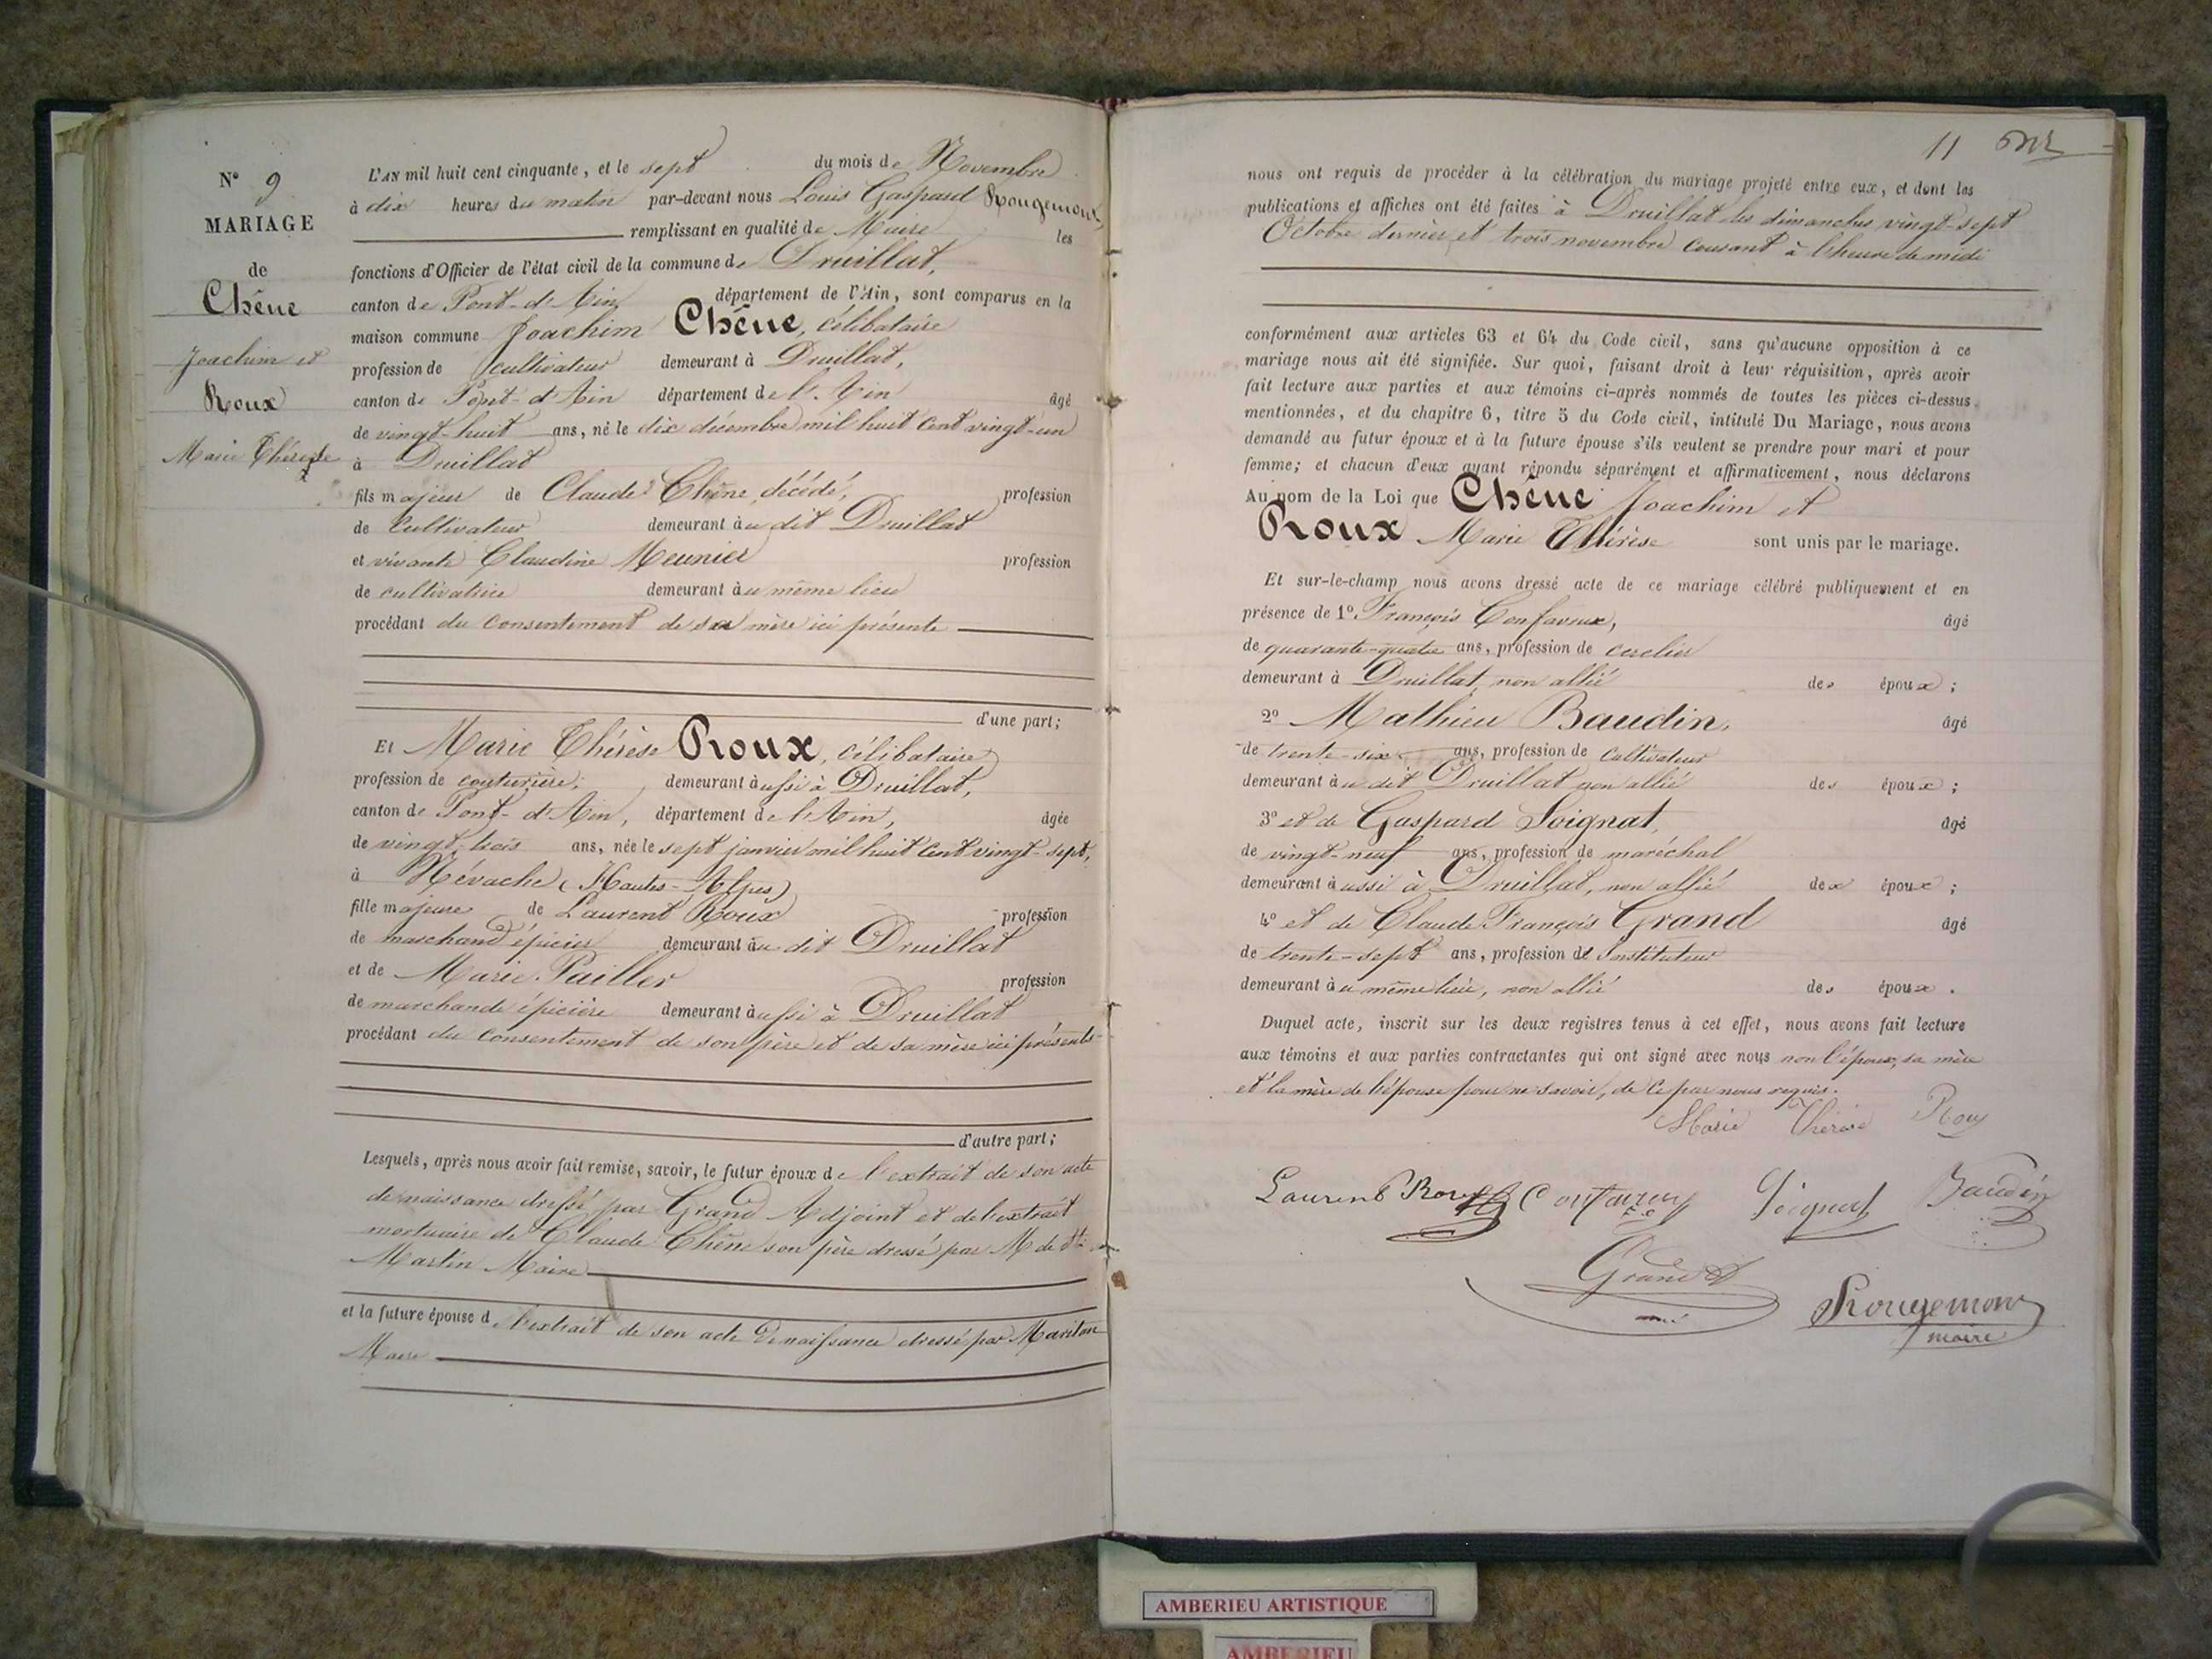 N° 9
MARIAGE
de
Chêne
Joachim et
Roux
Marie Thérèse
L'AN mil huit cent cinquante, et le sept du mois de Novembre
à dix heures du matin par-devant nous Louis Gaspard Rougemont,
remplissant en qualité de Maire les
fonctions d'Officier de l'état civil de la commune de Druillat,
canton de Pont-d'Ain département de l'Ain, sont comparus en la
maison commune Joachim Chêne, célibataire
profession de cultivateur demeurant à Druillat,
canton de Pont-d'Ain département de l'Ain âgé
de vingt-huit ans, né le dix décembre mil huit cent vingt-un
à Druillat
fils majeur de Claude Chêne, décédé, profession
de cultivateur demeurant au dit Druillat
et vivante Claudine Meunier profession
de cultivatrice demeurant au même lieu
procédant du consentement de sa mère ici présente
d'une part;
Et Marie Thérèse Roux, célibataire
profession de couturière, demeurant aussi à Druillat,
canton de Pont-d'Ain, département de l'Ain, âgée
de vingt-trois ans, née le sept janvier mil huit cent vingt-sept,
à Névache (Hautes-Alpes)
fille majeure de Laurent Roux profession
de marchand épicier demeurant au dit Druillat
et de Marie Pailler profession
de marchande épicière demeurant aussi à Druillat
procédant du consentement de son père et de sa mère ici présents
d'autre part;
Lesquels, après nous avoir fait remise, savoir, le futur époux de l'extrait de son acte
de naissance dressé par Grand Adjoint et de l'extrait
mortuaire de Claude Chêne son père dressé par M de St
Martin Maire
et la future épouse d l'extrait de son acte de naissance dressé par Mariton
Maire
11
nous ont requis de procéder à la célébration du mariage projeté entre eux, et dont les
publications et affiches ont été faites à Druillat les dimanches vingt-sept
Octobre dernier et trois novembre courant à l'heure de midi
conformément aux articles 63 et 64 du Code civil, sans qu'aucune opposition à ce
mariage nous ait été signifiée. Sur quoi, faisant droit à leur réquisition, après avoir
fait lecture aux parties et aux témoins ci-après nommés de toutes les pièces ci-dessus
mentionnées, et du chapitre 6, titre 5 du Code civil, intitulé Du Mariage, nous avons
demandé au futur époux et à la future épouse s'ils veulent se prendre pour mari et pour
femme; et chacun d'eux ayant répondu séparément et affirmativement, nous déclarons
Au nom de la Loi que Chêne Joachim et
Roux Marie Thérèse sont unis par le mariage.
Et sur-le-champ nous avons dressé acte de ce mariage célébré publiquement et en
présence de 1°. François Confavreux, âgé
de quarante-quatre ans, profession de cerclier
demeurant à Druillat non allié des époux;
2° Mathieu Baudin, âgé
de trente-six ans, profession de cultivateur
demeurant au dit Druillat non allié des époux;
3° et de Gaspard Soignat, âgé
de vingt-neuf ans, profession de maréchal
demeurant aussi à Druillat, non allié des époux;
4° et de Claude François Grand âgé
de trente-sept ans, profession de Instituteur
demeurant au même lieu, non allié des époux.
Duquel acte, inscrit sur les deux registres tenus à cet effet, nous avons fait lecture
aux témoins et aux parties contractantes qui ont signé avec nous non l'époux, sa mère
et la mère de l'épouse pour ne savoir, de ce par nous requis.
Marie Thérèse Roux
Laurent Roux Confavreux Soignat Baudin
Grand
Rougemont
maire
AMBERIEU ARTISTIQUE
AMBERIEU